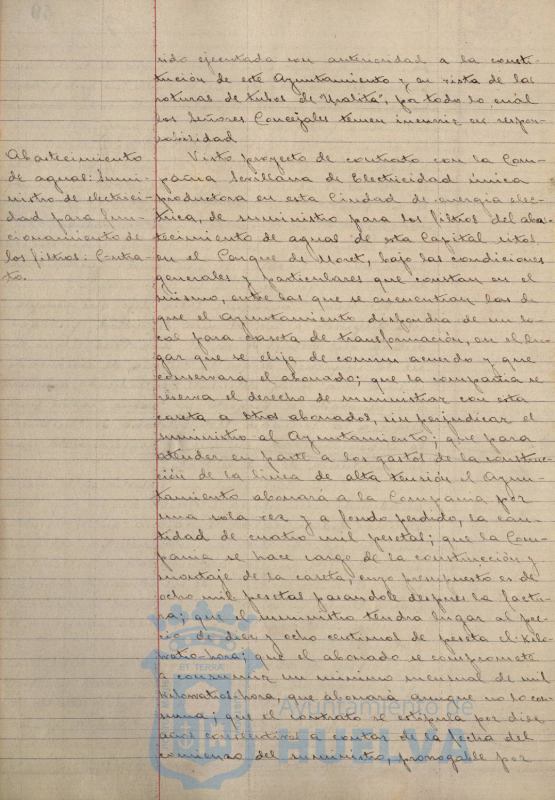 sido ejecutada con anterioridad a la consti-
tución de este Ayuntamiento y en vista de las
roturas de tubos de "Uralita", por todo lo cuál
los Señores Concejales temen incurrir en respon-
sabilidad
Abastecimiento
de aguas: Sumi-
nistro de electrici-
dad para fun-
cionamiento de
los filtros: Contra-
to.
Visto proyecto de contrato con la Com-
pañia Sevillana de Electricidad única
productora en esta Ciudad de energia eléc-
trica, de suministro para los filtros del abas-
tecimiento de aguas de esta Capital sitos
en el Parque de Moret, bajo las condiciones
generales y particulares que constan en el
mismo, entre las que se encuentran las de
que el Ayuntamiento dispondrá de un lo-
cal para caseta de transformación, en el lu-
gar que se elija de comun acuerdo y que
conservará el abonado; que la compañia se
reserva el derecho de suministrar con esta
caseta a otros abonados, sin perjudicar el
suministro al Ayuntamiento; que para
atender en parte a los gastos de la construc-
ción de la linea de alta tensión el Ayun-
tamiento abonará a la Compañia por
una sola vez y a fondo perdido, la can-
tidad de cuatro mil pesetas; que la Com-
pañia se hace cargo de la construcción y
montaje de la caseta, cuyo presupuesto es de
ocho mil pesetas pasandole despues la factu-
ra; que el suministro tendrá lugar al pre-
cio de diez y ocho centimos de peseta el kilo-
watio-hora; que el abonado se compromete
a consumir un minimo mensual de mil
kilowatios-hora, que abonará aunque no lo con-
suma; que el contrato se estipula por diez
años consecutivos a contar de la fecha del
comienzo del suministro, prorrogable por
ET TERRA
Ayuntamiento de
HUELVA